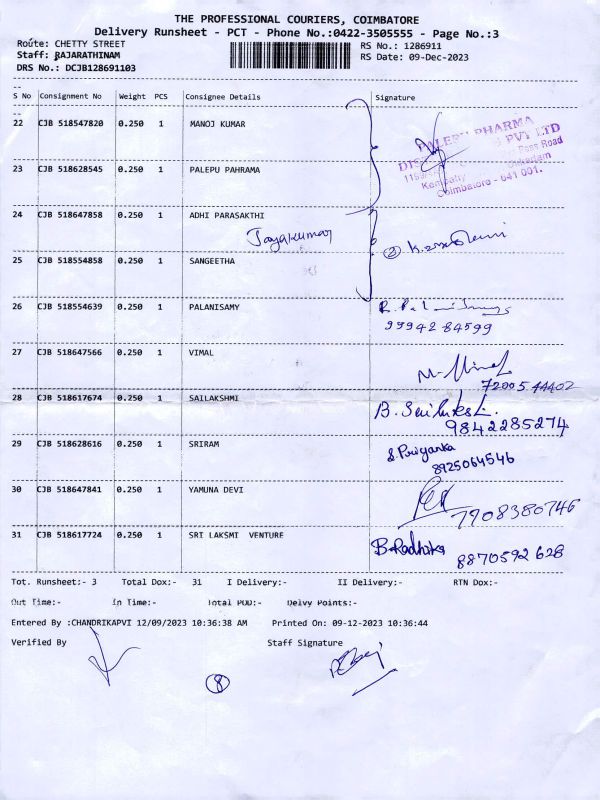 THE PROFESSIONAL COURIERS, COIMBATORE
Delivery Runsheet - PCT - Phone No.:0422-3505555 - Page No.:3
Route: CHETTY STREET
RS No.: 1286911
Staff: RAJARATHINAM
RS Date: 09-Dec-2023
DRS No.: DCJB128691103
S No Consignment No Weight PCS Consignee Details Signature
22 CJB 518547820 0.250 1 MANOJ KUMAR
PHARMA
PVT LTD
Road
Coimbatore - 641 001.
23 CJB 518628545 0.250 1 PALEPU PAHRAMA
24 CJB 518647858 0.250 1 ADHI PARASAKTHI
Jayakumar
25 CJB 518554858 0.250 1 SANGEETHA
26 CJB 518554639 0.250 1 PALANISAMY
99942 84599
27 CJB 518647566 0.250 1 VIMAL
72005 44402
28 CJB 518617674 0.250 1 SAILAKSHMI
9842285274
29 CJB 518628616 0.250 1 SRIRAM
S.Priyanka
8925064546
30 CJB 518647841 0.250 1 YAMUNA DEVI
7708380746
31 CJB 518617724 0.250 1 SRI LAKSMI VENTURE
B.Radhika
8870592628
Tot. Runsheet:- 3 Total Dox:- 31 I Delivery:- II Delivery:- RTN Dox:-
Out Time:- In Time:- Total POD:- Delvy Points:-
Entered By :CHANDRIKAPVI 12/09/2023 10:36:38 AM Printed On: 09-12-2023 10:36:44
Verified By Staff Signature
8